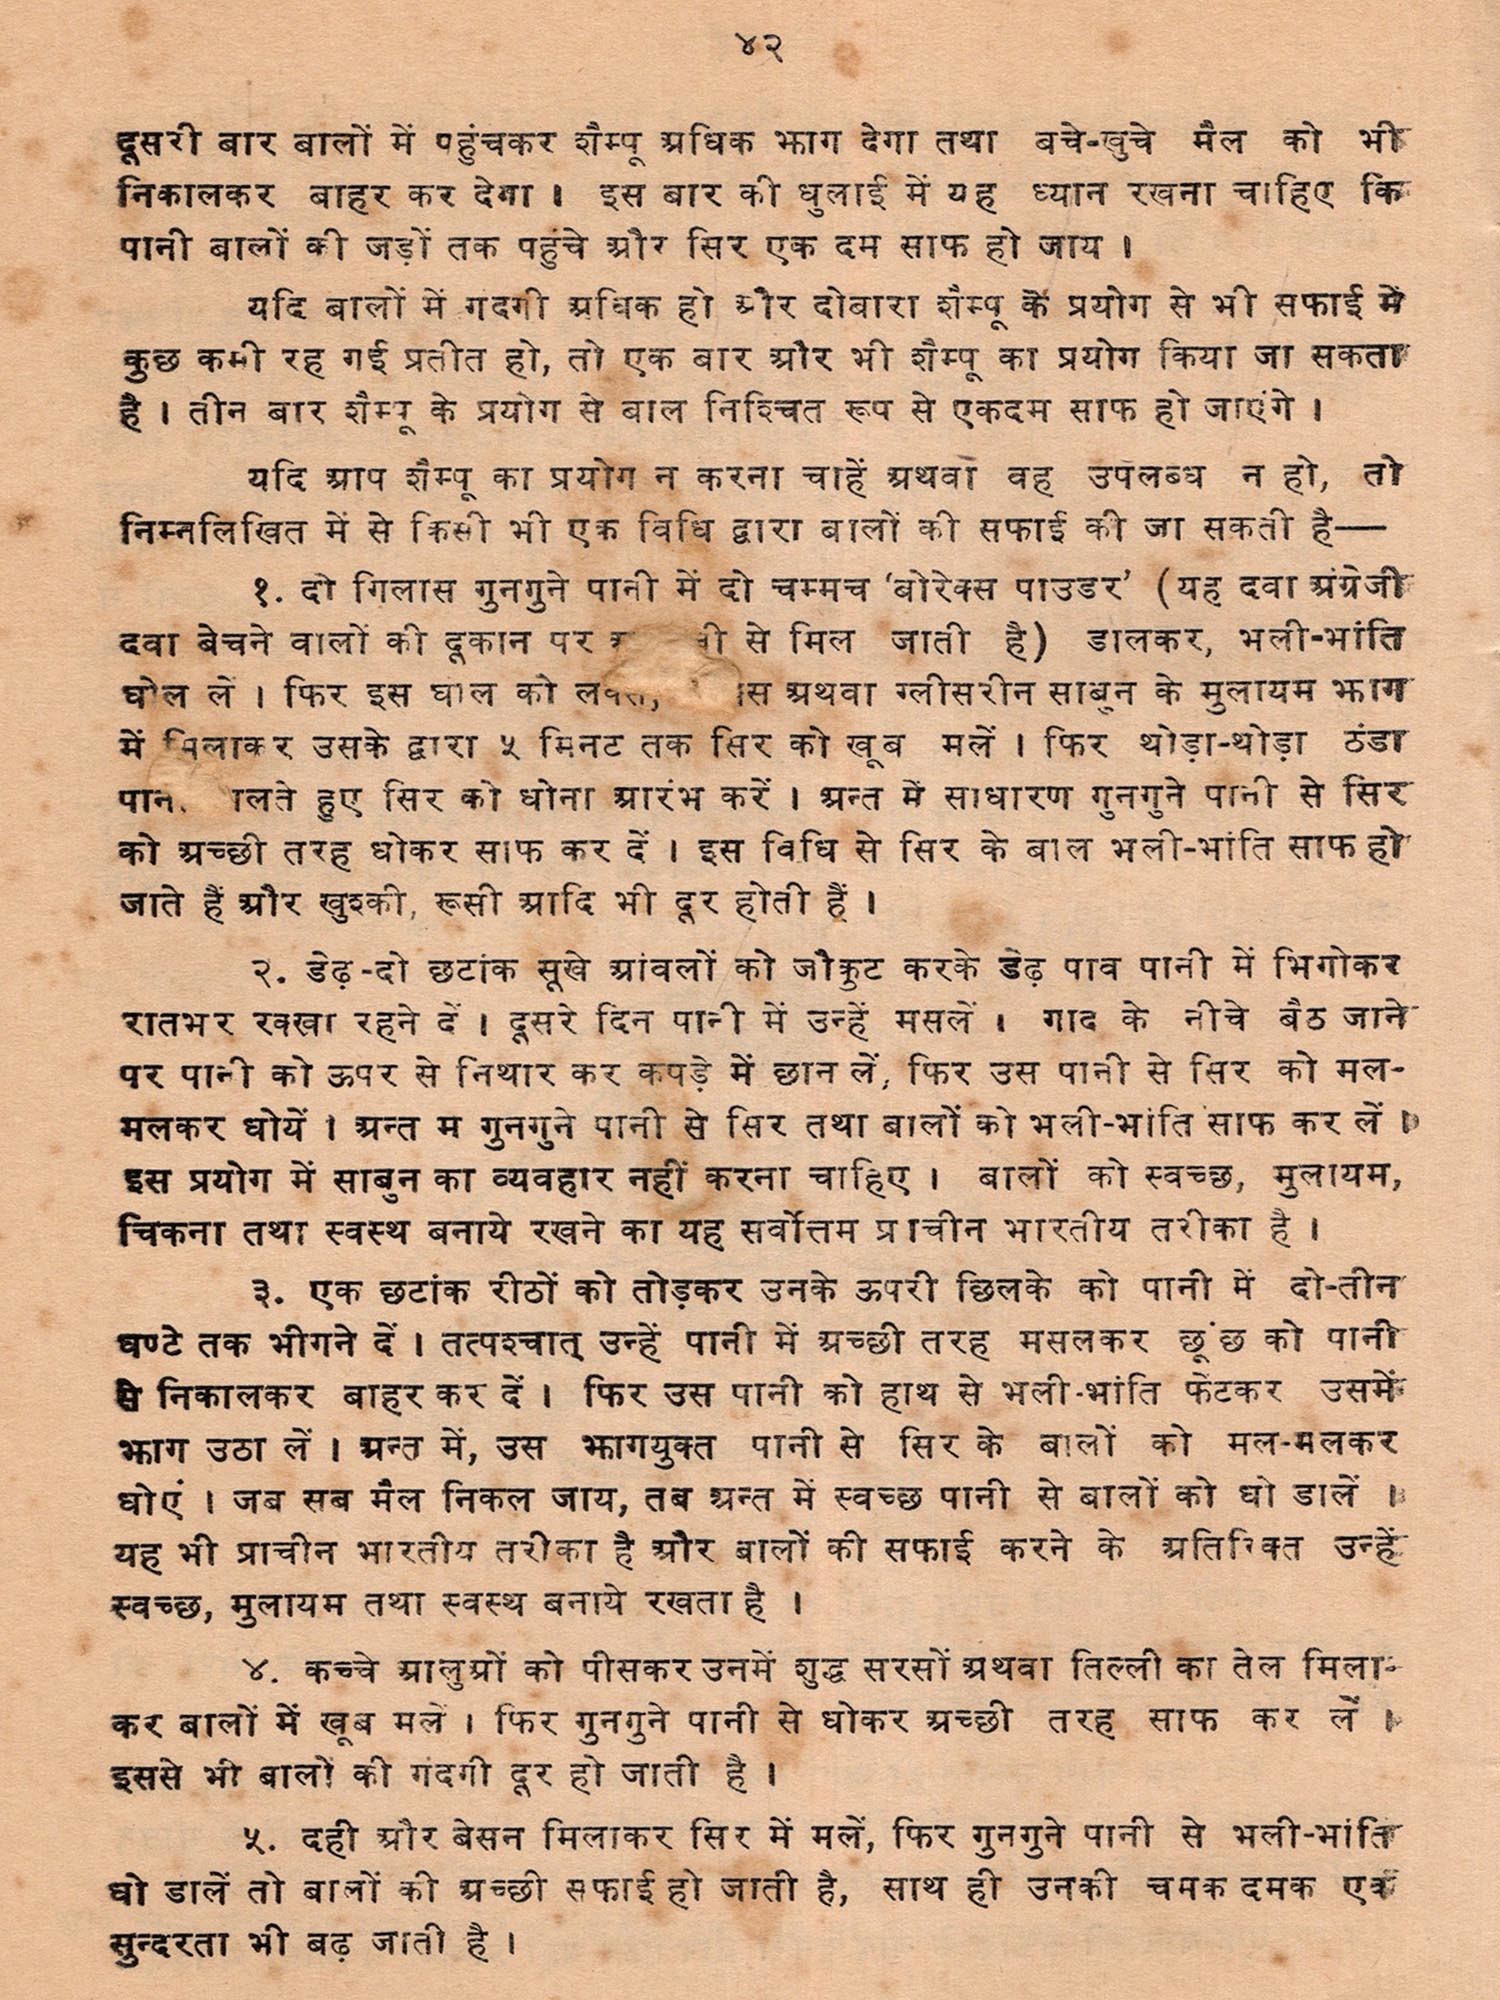 ४२
दूसरी बार बालों में पहुंचकर शैम्पू अधिक झाग देगा तथा बचे-खुचे मैल को भी
निकालकर बाहर कर देगा । इस बार की धुलाई में यह ध्यान रखना चाहिए कि
पानी बालों की जड़ों तक पहुंचे और सिर एक दम साफ हो जाय ।
यदि बालों में गदगी अधिक हो और दोबारा शैम्पू के प्रयोग से भी सफाई में
कुछ कमी रह गई प्रतीत हो, तो एक बार और भी शैम्पू का प्रयोग किया जा सकता
है । तीन बार शैम्पू के प्रयोग से बाल निश्चित रूप से एकदम साफ हो जाएंगे ।
यदि आप शैम्पू का प्रयोग न करना चाहें अथवा वह उपलब्ध न हो, तो
निम्नलिखित में से किसी भी एक विधि द्वारा बालों की सफाई की जा सकती है—
१. दो गिलास गुनगुने पानी में दो चम्मच ‘बोरेक्स पाउडर’ (यह दवा अंग्रेजी
दवा बेचने वालों की दूकान पर से मिल जाती है) डालकर, भली-भांति
घोल लें । फिर इस घोल को अथवा ग्लीसरीन साबुन के मुलायम झाग
में मिलाकर उसके द्वारा ५ मिनट तक सिर को खूब मलें । फिर थोड़ा-थोड़ा ठंडा
हुए सिर को धोना आरंभ करें । अन्त में साधारण गुनगुने पानी से सिर
को अच्छी तरह धोकर साफ कर दें । इस विधि से सिर के बाल भली-भांति साफ हो
जाते हैं और खुश्की, रूसी आदि भी दूर होती हैं ।
२. डेढ़-दो छटांक सूखे आंवलों को जौकुट करके डेढ़ पाव पानी में भिगोकर
रातभर रक्खा रहने दें । दूसरे दिन पानी में उन्हें मसलें । गाद के नीचे बैठ जाने
पर पानी को ऊपर से निथार कर कपड़े में छान लें, फिर उस पानी से सिर को मल-
मलकर धोयें । अन्त म गुनगुने पानी से सिर तथा बालों को भली-भांति साफ कर लें ।
इस प्रयोग में साबुन का व्यवहार नहीं करना चाहिए । बालों को स्वच्छ, मुलायम,
चिकना तथा स्वस्थ बनाये रखने का यह सर्वोत्तम प्राचीन भारतीय तरीका है ।
३. एक छटांक रीठों को तोड़कर उनके ऊपरी छिलके को पानी में दो-तीन
घण्टे तक भीगने दें । तत्पश्चात् उन्हें पानी में अच्छी तरह मसलकर छूंछ को पानी
से निकालकर बाहर कर दें । फिर उस पानी को हाथ से भली-भांति फेंटकर उसमें
झाग उठा लें । अन्त में, उस झागयुक्त पानी से सिर के बालों को मल-मलकर
धोएं । जब सब मैल निकल जाय, तब अन्त में स्वच्छ पानी से बालों को धो डालें ।
यह भी प्राचीन भारतीय तरीका है और बालों की सफाई करने के अतिरिक्त उन्हें
स्वच्छ, मुलायम तथा स्वस्थ बनाये रखता है ।
४. कच्चे आलुओं को पीसकर उनमें शुद्ध सरसों अथवा तिल्ली का तेल मिला-
कर बालों में खूब मलें । फिर गुनगुने पानी से धोकर अच्छी तरह साफ कर लें ।
इससे भी बालों की गंदगी दूर हो जाती है ।
५. दही और बेसन मिलाकर सिर में मलें, फिर गुनगुने पानी से भली-भांति
धो डालें तो बालों की अच्छी सफाई हो जाती है, साथ ही उनकी चमक दमक एवं
सुन्दरता भी बढ़ जाती है ।